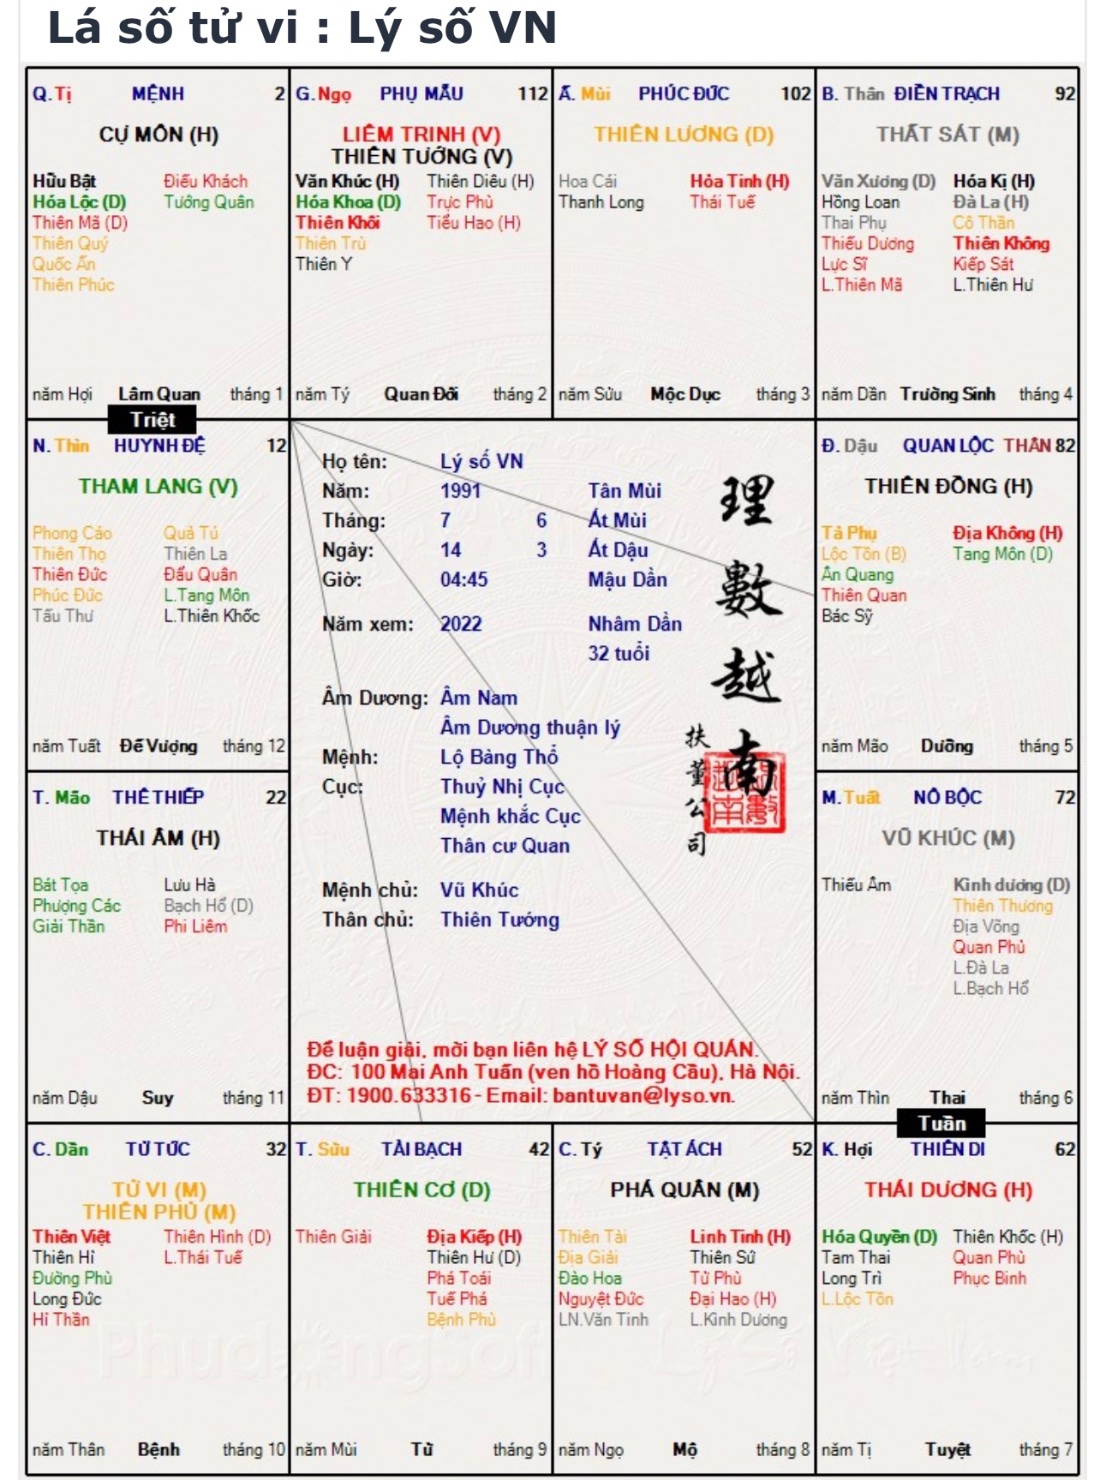 Lá số tử vi : Lý số VN
Q. Tị MỆNH 2
CỰ MÔN (H)
Hữu Bật Điếu Khách
Hóa Lộc (D) Tướng Quân
Thiên Mã (D)
Thiên Quý
Quốc Ấn
Thiên Phúc
năm Hợi Lâm Quan tháng 1
G. Ngọ PHỤ MẪU 112
LIÊM TRINH (V)
THIÊN TƯỚNG (V)
Văn Khúc (H) Thiên Diêu (H)
Hóa Khoa (D) Trực Phù
Thiên Khôi Tiểu Hao (H)
Thiên Trù
Thiên Y
năm Tý Quan Đới tháng 2
Ấ. Mùi PHÚC ĐỨC 102
THIÊN LƯƠNG (D)
Hoa Cái Hỏa Tinh (H)
Thanh Long Thái Tuế
năm Sửu Mộc Dục tháng 3
B. Thân ĐIỀN TRẠCH 92
THẤT SÁT (M)
Văn Xương (D) Hóa Kị (H)
Hồng Loan Đà La (H)
Thai Phụ Cô Thần
Thiếu Dương Thiên Không
Lực Sĩ Kiếp Sát
L.Thiên Mã L.Thiên Hư
năm Dần Trường Sinh tháng 4
Triệt
N. Thìn HUYNH ĐỆ 12
THAM LANG (V)
Phong Cáo Quả Tú
Thiên Thọ Thiên La
Thiên Đức Đẩu Quân
Phúc Đức L.Tang Môn
Tấu Thư L.Thiên Khốc
năm Tuất Đế Vượng tháng 12
Họ tên: Lý số VN
Năm: 1991 Tân Mùi
Tháng: 7 6 Ất Mùi
Ngày: 14 3 Ất Dậu
Giờ: 04:45 Mậu Dần
Năm xem: 2022 Nhâm Dần
32 tuổi
Âm Dương: Âm Nam
Âm Dương thuận lý
Mệnh: Lộ Bàng Thổ
Cục: Thuỷ Nhị Cục
Mệnh khắc Cục
Thân cư Quan
Mệnh chủ: Vũ Khúc
Thân chủ: Thiên Tướng
理數越南
扶董公司
Để luận giải, mời bạn liên hệ LÝ SỐ HỘI QUÁN.
ĐC: 100 Mai Anh Tuấn (ven hồ Hoàng Cầu), Hà Nội.
ĐT: 1900.633316 - Email: bantuvan@lyso.vn.
Đ. Dậu QUAN LỘC THÂN 82
THIÊN ĐỒNG (H)
Tả Phụ Địa Không (H)
Lộc Tồn (B) Tang Môn (D)
Ân Quang
Thiên Quan
Bác Sỹ
năm Mão Dưỡng tháng 5
T. Mão THÊ THIẾP 22
THÁI ÂM (H)
Bát Tọa Lưu Hà
Phượng Các Bạch Hổ (D)
Giải Thần Phi Liêm
năm Dậu Suy tháng 11
M. Tuất NÔ BỘC 72
VŨ KHÚC (M)
Thiếu Âm Kình dương (D)
Thiên Thương
Địa Võng
Quan Phủ
L.Đà La
L.Bạch Hổ
năm Thìn Thai tháng 6
Tuần
C. Dần TỬ TỨC 32
TỬ VI (M)
THIÊN PHỦ (M)
Thiên Việt Thiên Hình (D)
Thiên Hỉ L.Thái Tuế
Đường Phù
Long Đức
Hỉ Thần
năm Thân Bệnh tháng 10
T. Sửu TÀI BẠCH 42
THIÊN CƠ (D)
Thiên Giải Địa Kiếp (H)
Thiên Hư (D)
Phá Toái
Tuế Phá
Bệnh Phù
năm Mùi Tử tháng 9
C. Tý TẬT ÁCH 52
PHÁ QUÂN (M)
Thiên Tài Linh Tinh (H)
Địa Giải Thiên Sứ
Đào Hoa Tử Phù
Nguyệt Đức Đại Hao (H)
LN.Văn Tinh L.Kình Dương
năm Ngọ Mộ tháng 8
K. Hợi THIÊN DI 62
THÁI DƯƠNG (H)
Hóa Quyền (D) Thiên Khốc (H)
Tam Thai Quan Phù
Long Trì Phục Binh
L.Lộc Tồn
năm Tị Tuyệt tháng 7
Phudongsoft Lý Số Việt Nam